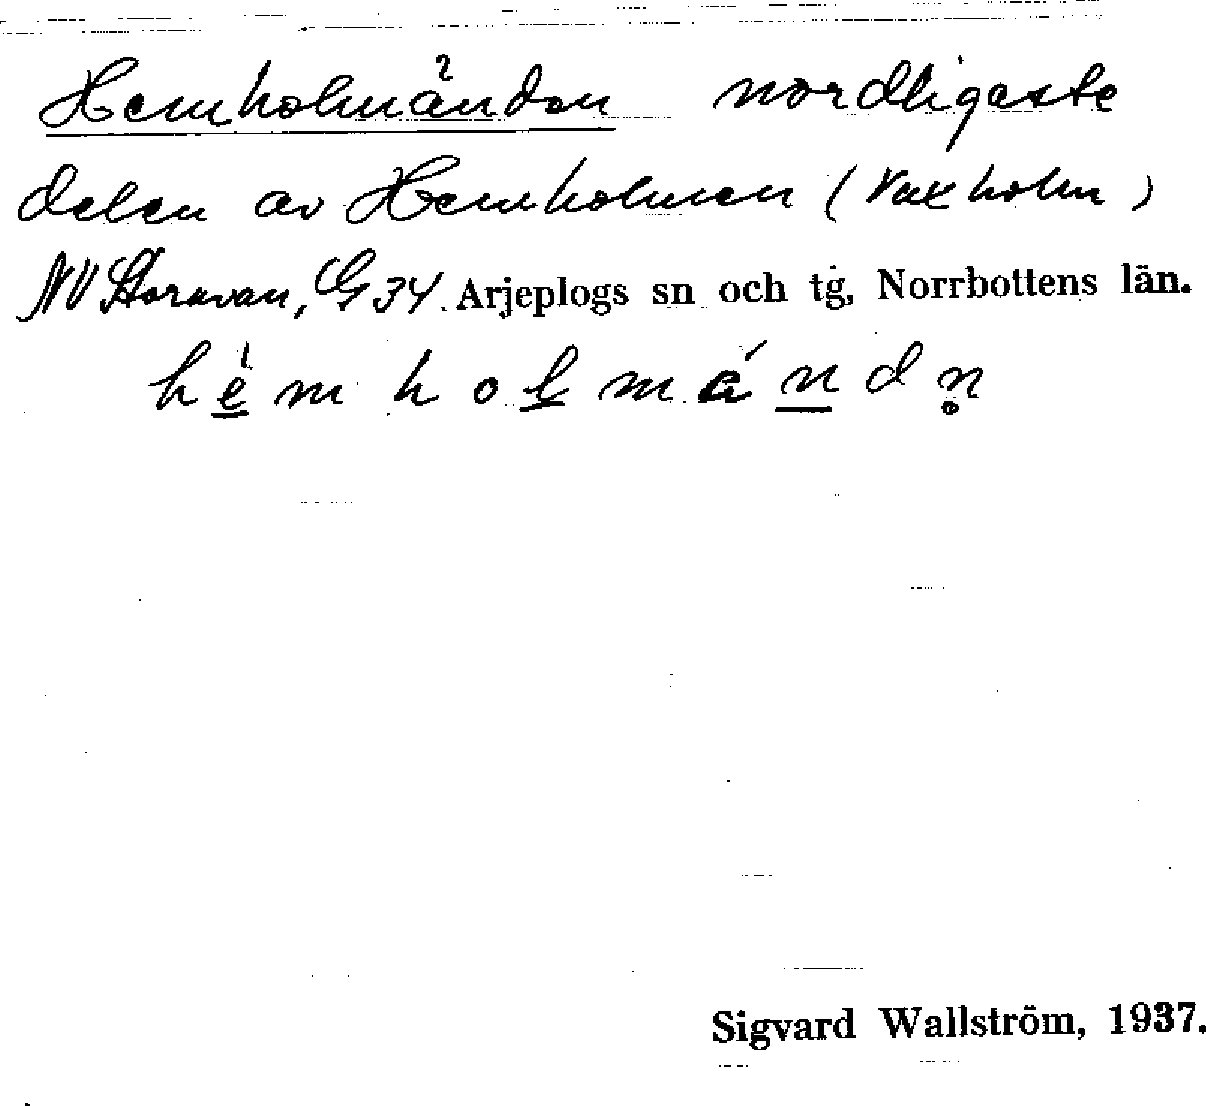 Hemholmändan nordligaste
delen av Hemholmen (Vaxholm)
NV Storavan, G 34. Arjeplogs sn och tg, Norrbottens län.
hèmholmándn̥
Sigvard Wallström, 1937.